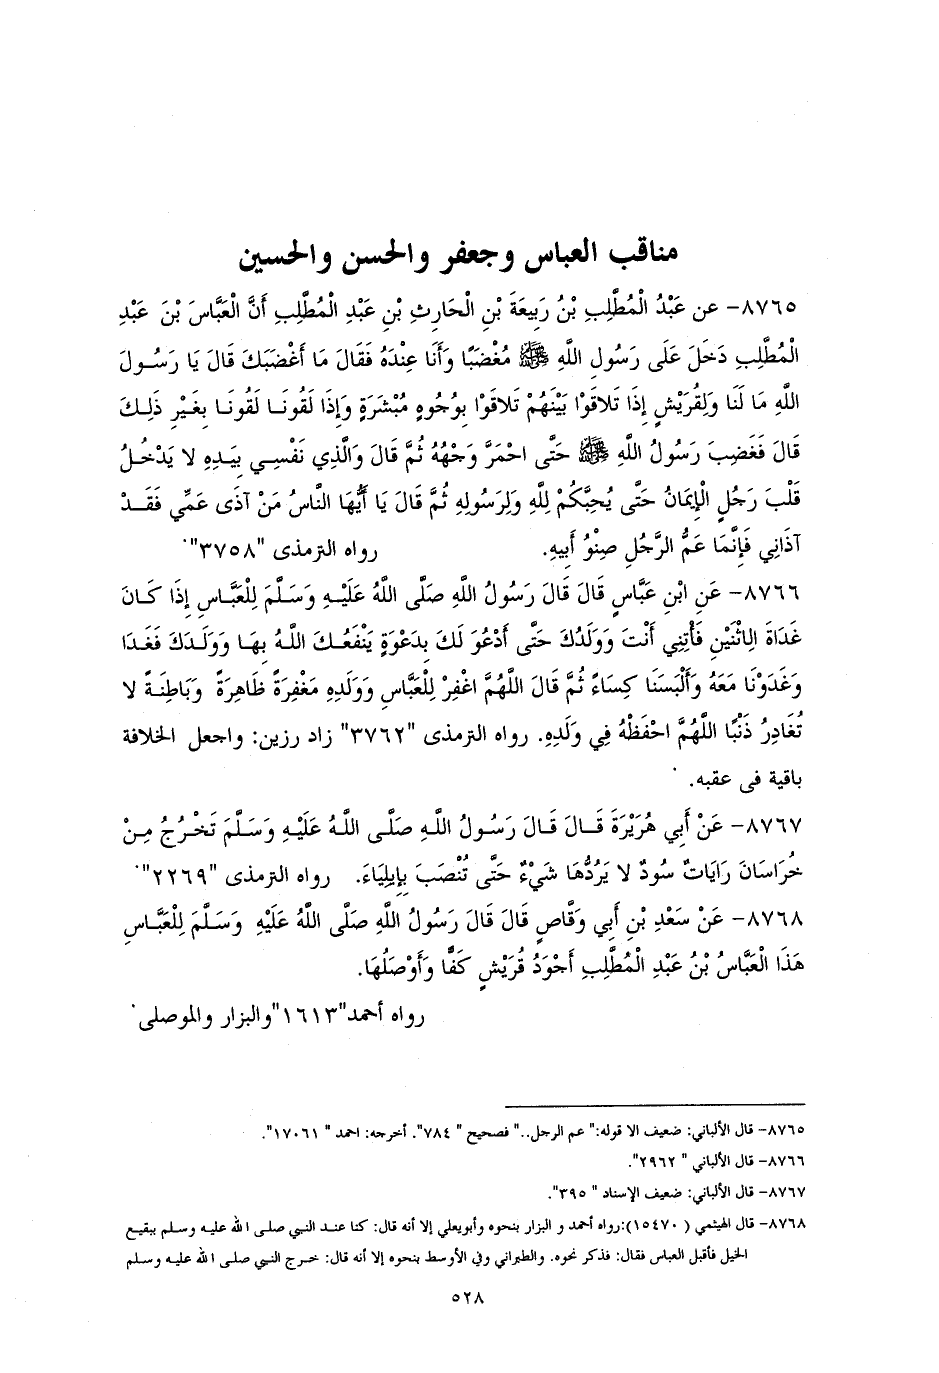 مناقب العباس وجعفر والحسن والحسين
٨٧٦٥- عن عَبْدُ الْمُطَّلِبِ بْنُ رَبِيعَةَ بْنِ الْحَارِثِ بْنِ عَبْدِ الْمُطَّلِبِ أَنَّ الْعَبَّاسَ بْنَ عَبْدِ
الْمُطَّلِبِ دَخَلَ عَلَى رَسُولِ اللَّهِ ﷺ مُغْضَبًا وَأَنَا عِنْدَهُ فَقَالَ مَا أَغْضَبَكَ قَالَ يَا رَسُولَ
اللَّهِ مَا لَنَا وَلِقُرَيْشٍ إِذَا تَلاقَوْا بَيْنَهُمْ تَلاقَوْا بِوُجُوهٍ مُبْشَرَةٍ وَإِذَا لَقُونَا لَقُونَا بِغَيْرِ ذَلِكَ
قَالَ فَغَضِبَ رَسُولُ اللَّهِ ﷺ حَتَّى احْمَرَّ وَجْهُهُ ثُمَّ قَالَ وَالَّذِي نَفْسِي بِيَدِهِ لا يَدْخُلُ
قَلْبَ رَجُلٍ الْإِيمَانُ حَتَّى يُحِبَّكُمْ لِلَّهِ وَلِرَسُولِهِ ثُمَّ قَالَ يَا أَيُّهَا النَّاسُ مَنْ آذَى عَمِّي فَقَدْ
آذَانِي فَإِنَّمَا عَمُّ الرَّجُلِ صِنْوُ أَبِيهِ. رواه الترمذى "٣٧٥٨"
٨٧٦٦- عَنِ ابْنِ عَبَّاسٍ قَالَ قَالَ رَسُولُ اللَّهِ صَلَّى اللَّهُ عَلَيْهِ وَسَلَّمَ لِلْعَبَّاسِ إِذَا كَانَ
غَدَاةَ الِاثْنَيْنِ فَأْتِنِي أَنْتَ وَوَلَدُكَ حَتَّى أَدْعُوَ لَكَ بِدَعْوَةٍ يَنْفَعُكَ اللَّهُ بِهَا وَوَلَدَكَ فَغَدَا
وَغَدَوْنَا مَعَهُ وَأَلْبَسَنَا كِسَاءً ثُمَّ قَالَ اللَّهُمَّ اغْفِرْ لِلْعَبَّاسِ وَوَلَدِهِ مَغْفِرَةً ظَاهِرَةً وَبَاطِنَةً لا
تُغَادِرُ ذَنْبًا اللَّهُمَّ احْفَظْهُ فِي وَلَدِهِ. رواه الترمذى "٣٧٦٢" زاد رزين: واجعل الخلافة
باقية فى عقبه.
٨٧٦٧- عَنْ أَبِي هُرَيْرَةَ قَالَ قَالَ رَسُولُ اللَّهِ صَلَّى اللَّهُ عَلَيْهِ وَسَلَّمَ تَخْرُجُ مِنْ
خُرَاسَانَ رَايَاتٌ سُودٌ لا يَرُدُّهَا شَيْءٌ حَتَّى تُنْصَبَ بِإِيلِيَاءَ. رواه الترمذى "٢٢٦٩"
٨٧٦٨- عَنْ سَعْدِ بْنِ أَبِي وَقَّاصٍ قَالَ قَالَ رَسُولُ اللَّهِ صَلَّى اللَّهُ عَلَيْهِ وَسَلَّمَ لِلْعَبَّاسِ
هَذَا الْعَبَّاسُ بْنُ عَبْدِ الْمُطَّلِبِ أَجْوَدُ قُرَيْشٍ كَفًّا وَأَوْصَلُهَا.
رواه أحمد"١٦١٣"والبزار والموصلى
٨٧٦٥- قال الألباني: ضعيف الا قوله:" عم الرجل.." فصحيح " ٧٨٤". أخرجه: احمد " ١٧٠٦١".
٨٧٦٦- قال الألباني " ٢٩٦٢".
٨٧٦٧- قال الألباني: ضعيف الإسناد " ٣٩٥".
٨٧٦٨- قال الهيثمي ( ١٥٤٧٠):رواه أحمد و البزار بنحوه وأبويعلي إلا أنه قال: كنا عند النبي صلى الله عليه وسلم ببقيع
الخيل فأقبل العباس فقال: فذكر نحوه. والطبراني وفي الأوسط بنحوه إلا أنه قال: خرج النبي صلى الله عليه وسلم
٥٢٨